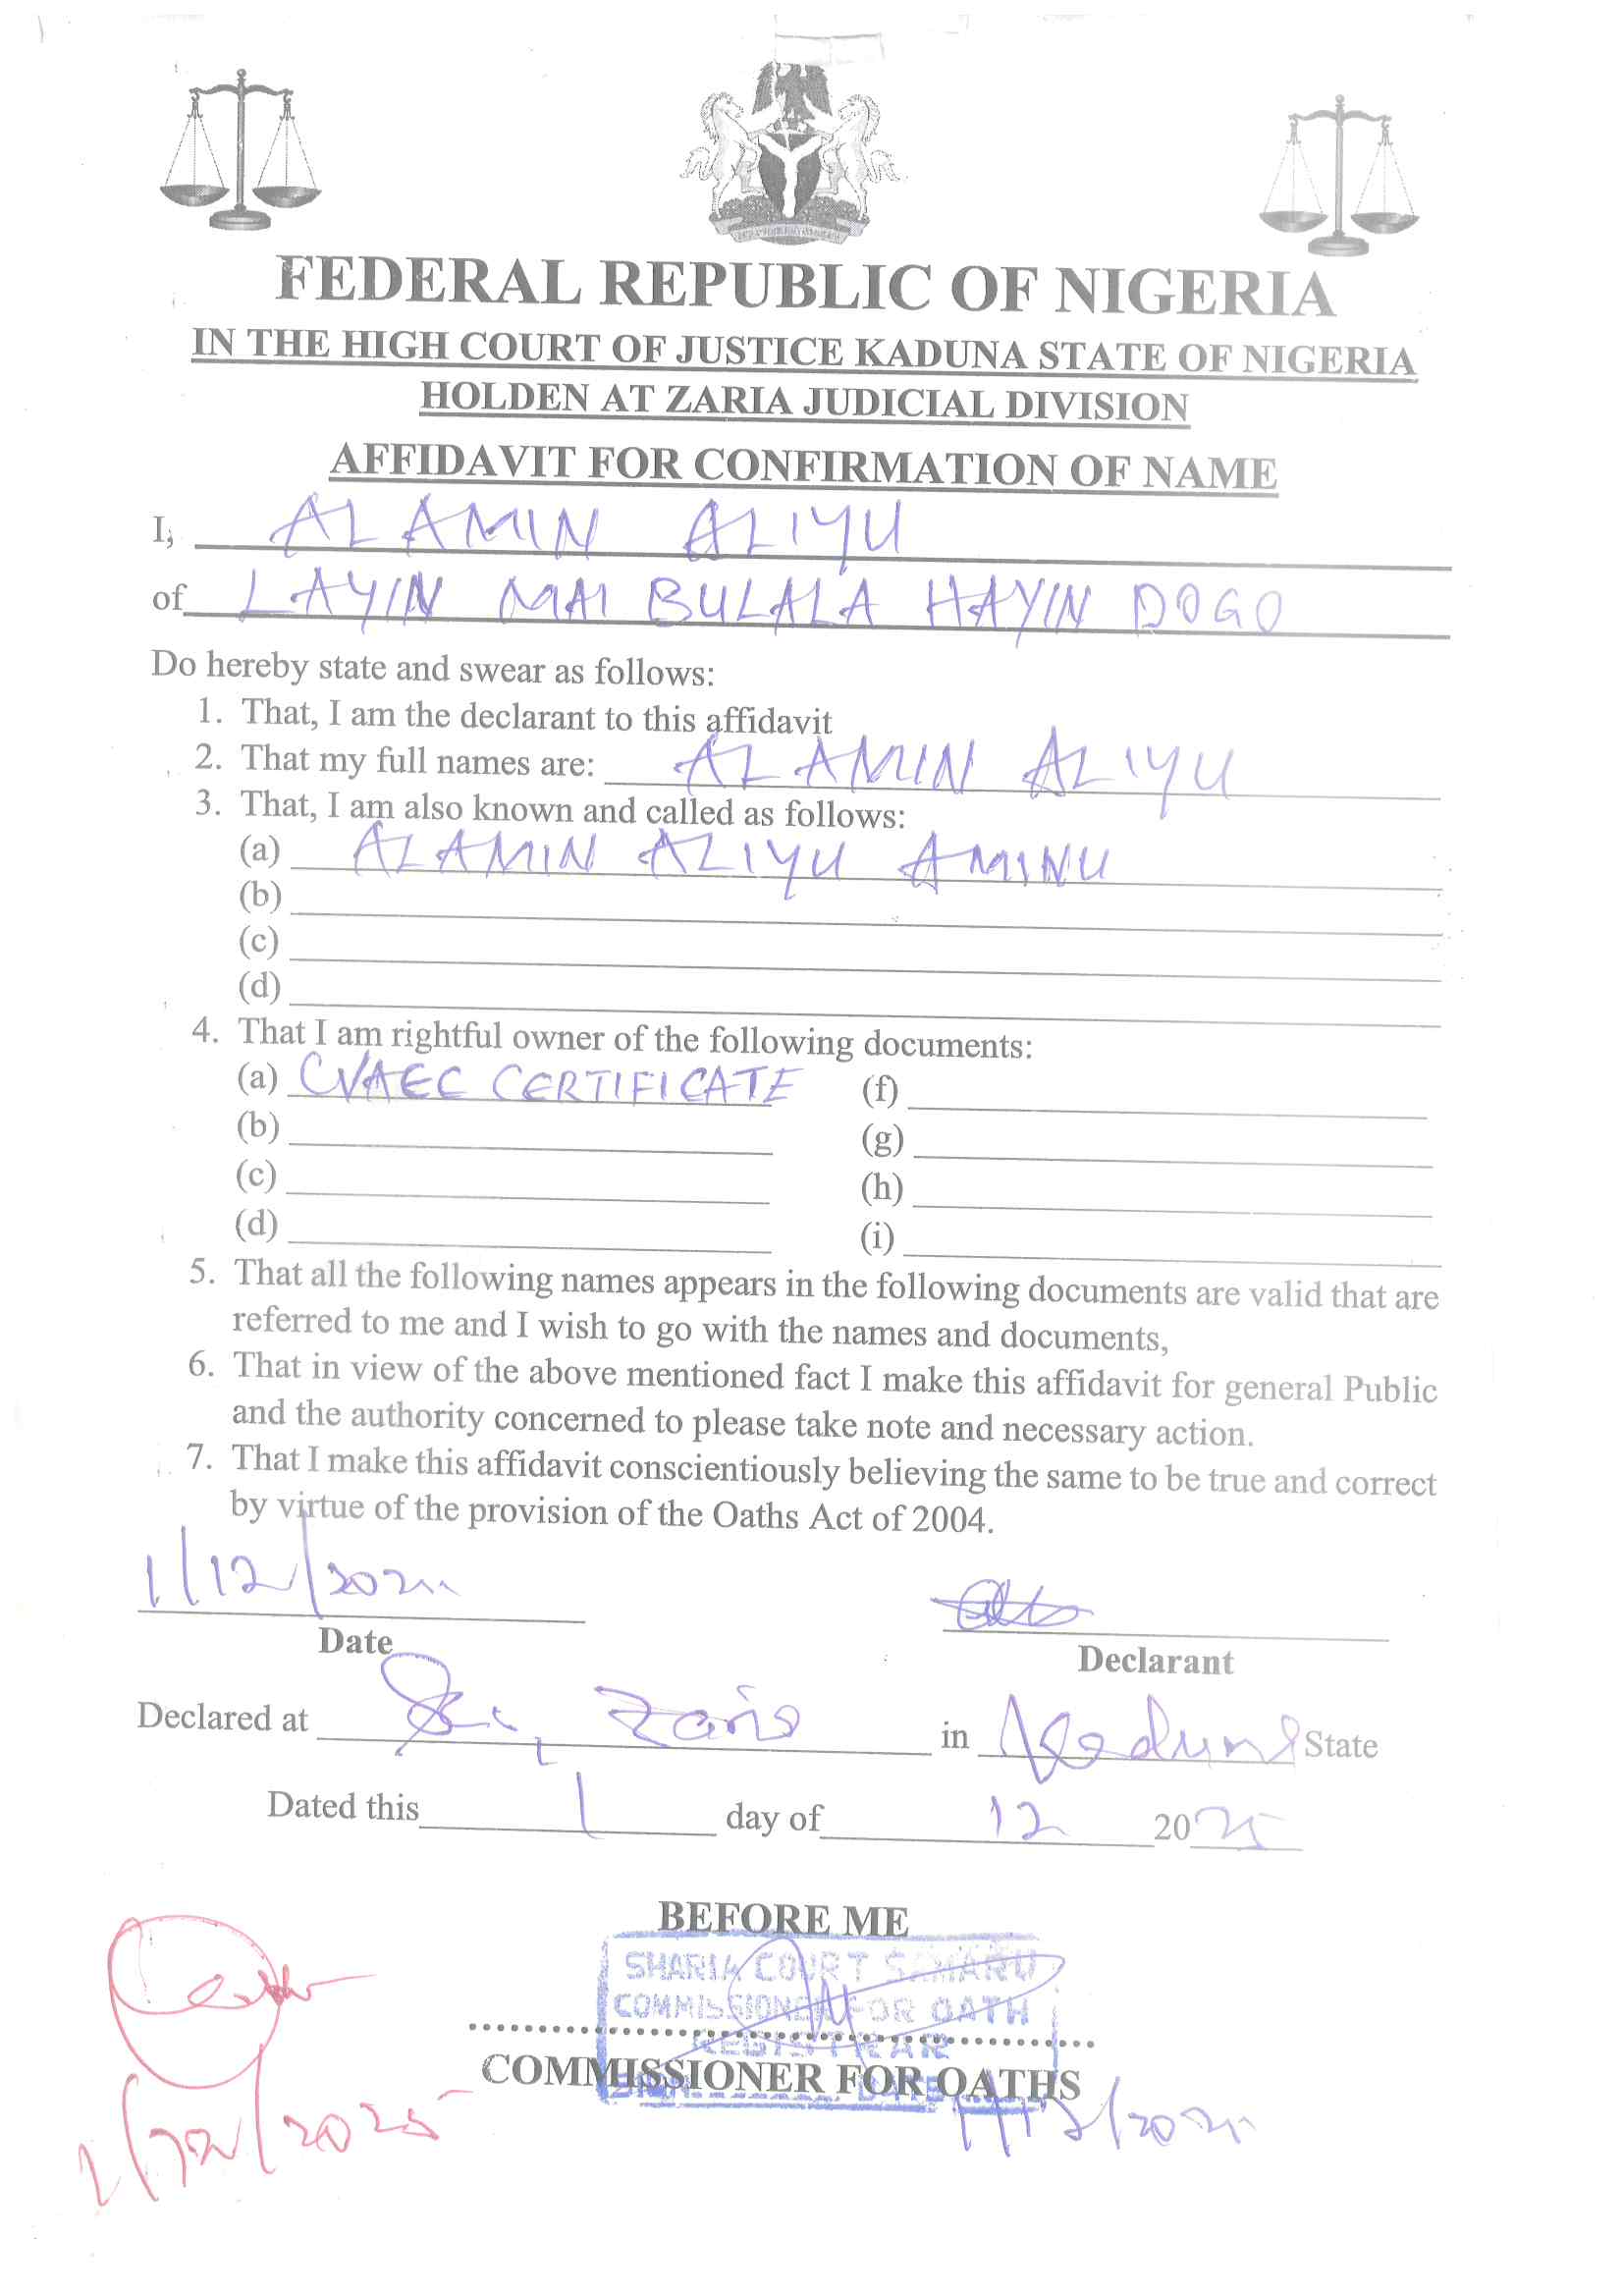 FEDERAL REPUBLIC OF NIGERIA
IN THE HIGH COURT OF JUSTICE KADUNA STATE OF NIGERIA
HOLDEN AT ZARIA JUDICIAL DIVISION
AFFIDAVIT FOR CONFIRMATION OF NAME
I, ALAMIN ALIYU
of LAYIN MAI BULALA HAYIN DOGO
Do hereby state and swear as follows:
1. That, I am the declarant to this affidavit
2. That my full names are: ALAMIN ALIYU
3. That, I am also known and called as follows:
(a) ALAMIN ALIYU AMINU
(b)
(c)
(d)
4. That I am rightful owner of the following documents:
(a) WAEC CERTIFICATE (f)
(b) (g)
(c) (h)
(d) (i)
5. That all the following names appears in the following documents are valid that are
referred to me and I wish to go with the names and documents,
6. That in view of the above mentioned fact I make this affidavit for general Public
and the authority concerned to please take note and necessary action.
7. That I make this affidavit conscientiously believing the same to be true and correct
by virtue of the provision of the Oaths Act of 2004.
1/12/2025
Date
Declarant
Declared at Zaria in Kaduna State
Dated this 1 day of 12 2025
BEFORE ME
SHARIA COURT SAMARU
COMMISSIONER FOR OATH
REGISTRAR
SIGN DATE
COMMISSIONER FOR OATHS
1/12/2025
1/12/2025